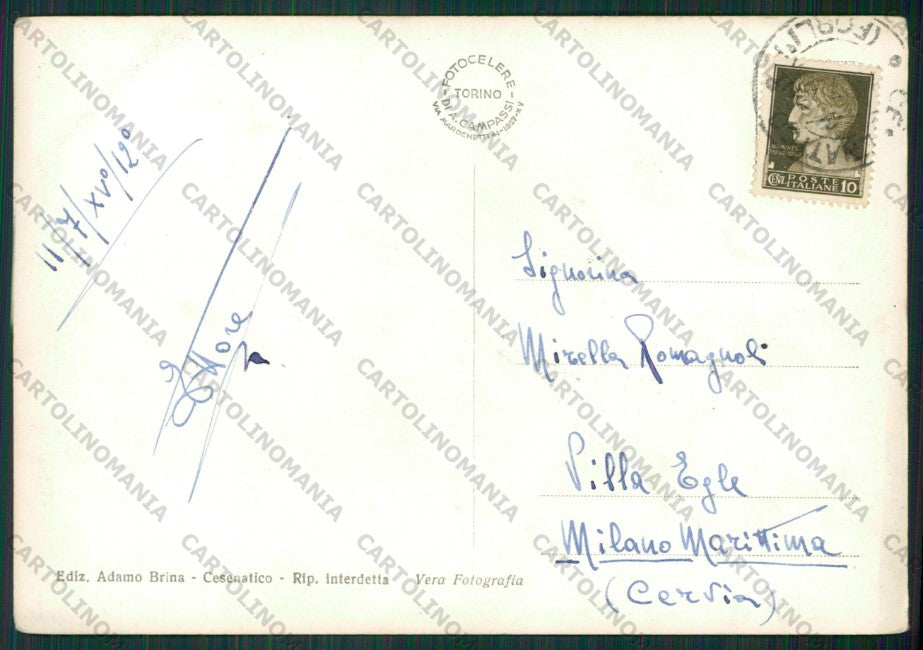 FOTOCELERE
TORINO
DI A. CAMPASSI
VIA MAROCHETTI 41-1937-XV
(FORLI)
POSTE
ITALIANE
CENT. 10
11/7/XV°/12°
Ettore
Signorina
Mirella Romagnoli
Villa Egle
Milano Marittima
(Cervia)
Ediz. Adamo Brina - Cesenatico - Rip. interdetta Vera Fotografia
CARTOLINOMANIA